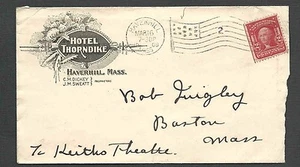 HOTEL
THORNDIKE
HAVERHILL, MASS.
C.M. DICKEY
J.M. SWEATT
PROPRIETORS
HAVERHILL
MAR 16
2
Bob Quigley
Boston
Mass
℅ Keiths Theatre.